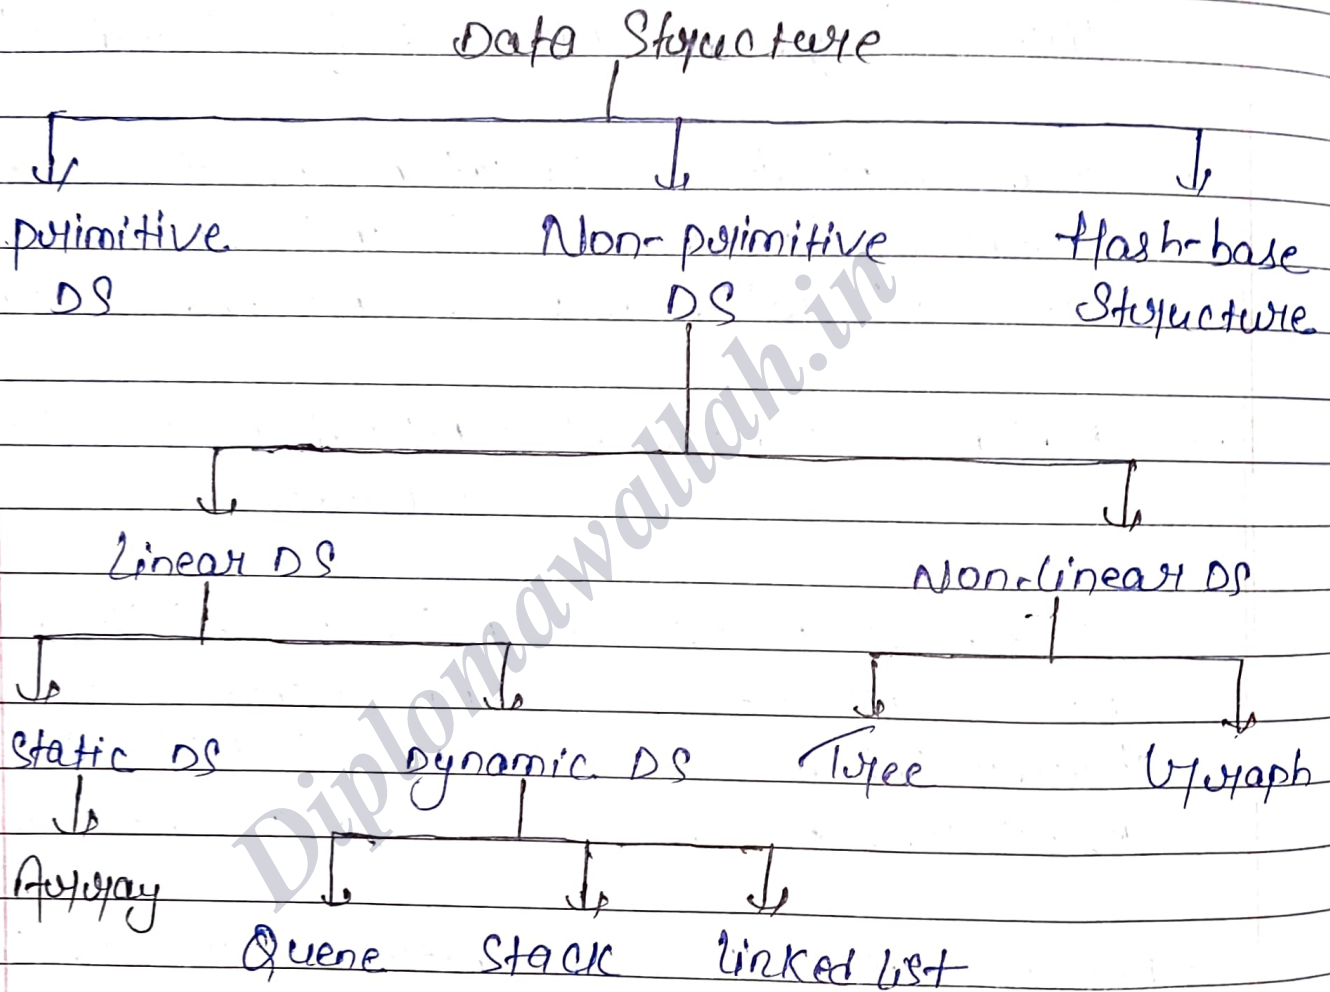 Data Structure
primitive
DS
Non-primitive
DS
Hash-base
Structure
Linear DS
Non-linear DS
Static DS
Dynamic DS
Tree
Graph
Array
Quene
Stack
Linked List
Diplomawallah.in